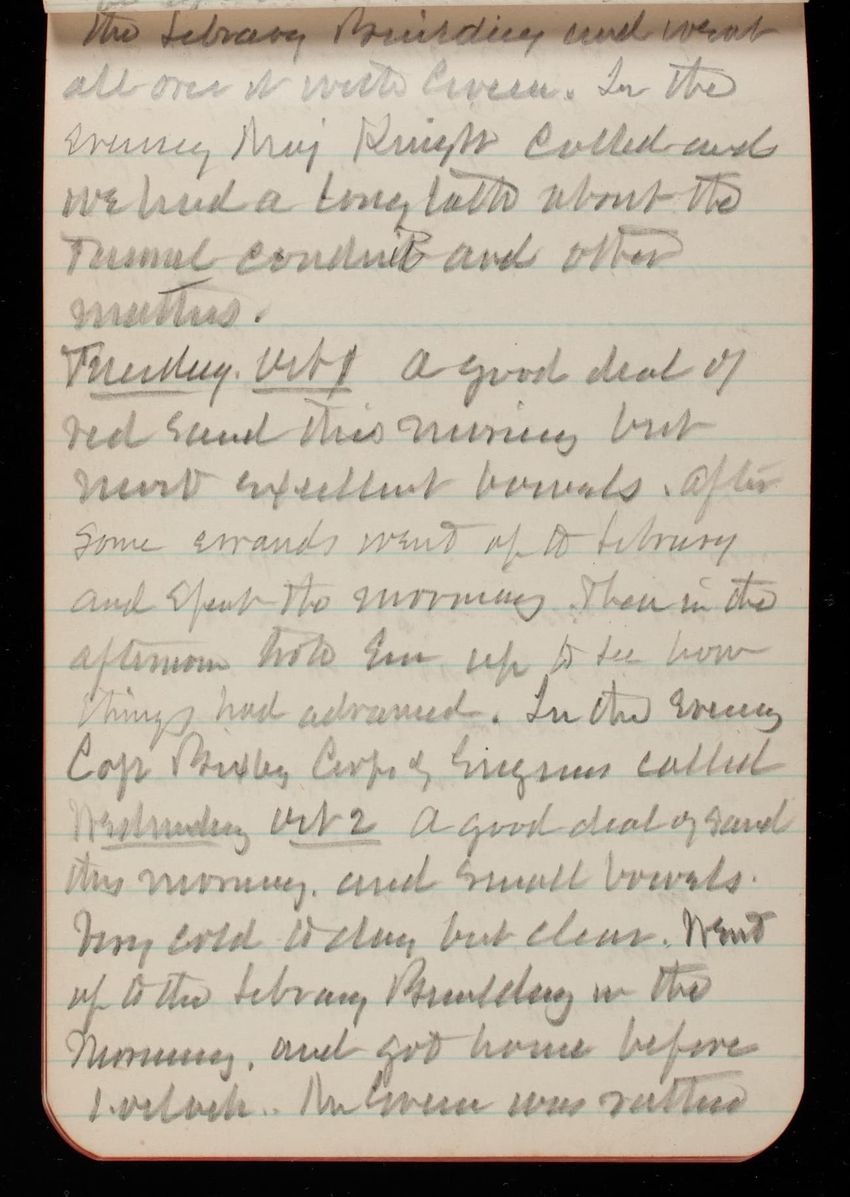 the Library Building and went
all over it with Green. In the
Evening Maj Knight called and
we had a long talk about the
Tunnel conduit and other
matters.
Tuesday. Oct 1 A good deal of
red sand this morning but
most excellent bowels. After
some errands went up to Library
and spent the morning. Then in the
afternoon took Em up to see how
things had advanced. In the Evening
Cap Bixby Corps of Engineers called
Wednesday Oct 2 A good deal of sand
this morning. and small bowels.
Very cold to day but clear. Went
up to the Library Building in the
Morning. and got home before
1. oclock. Mr Green was rather